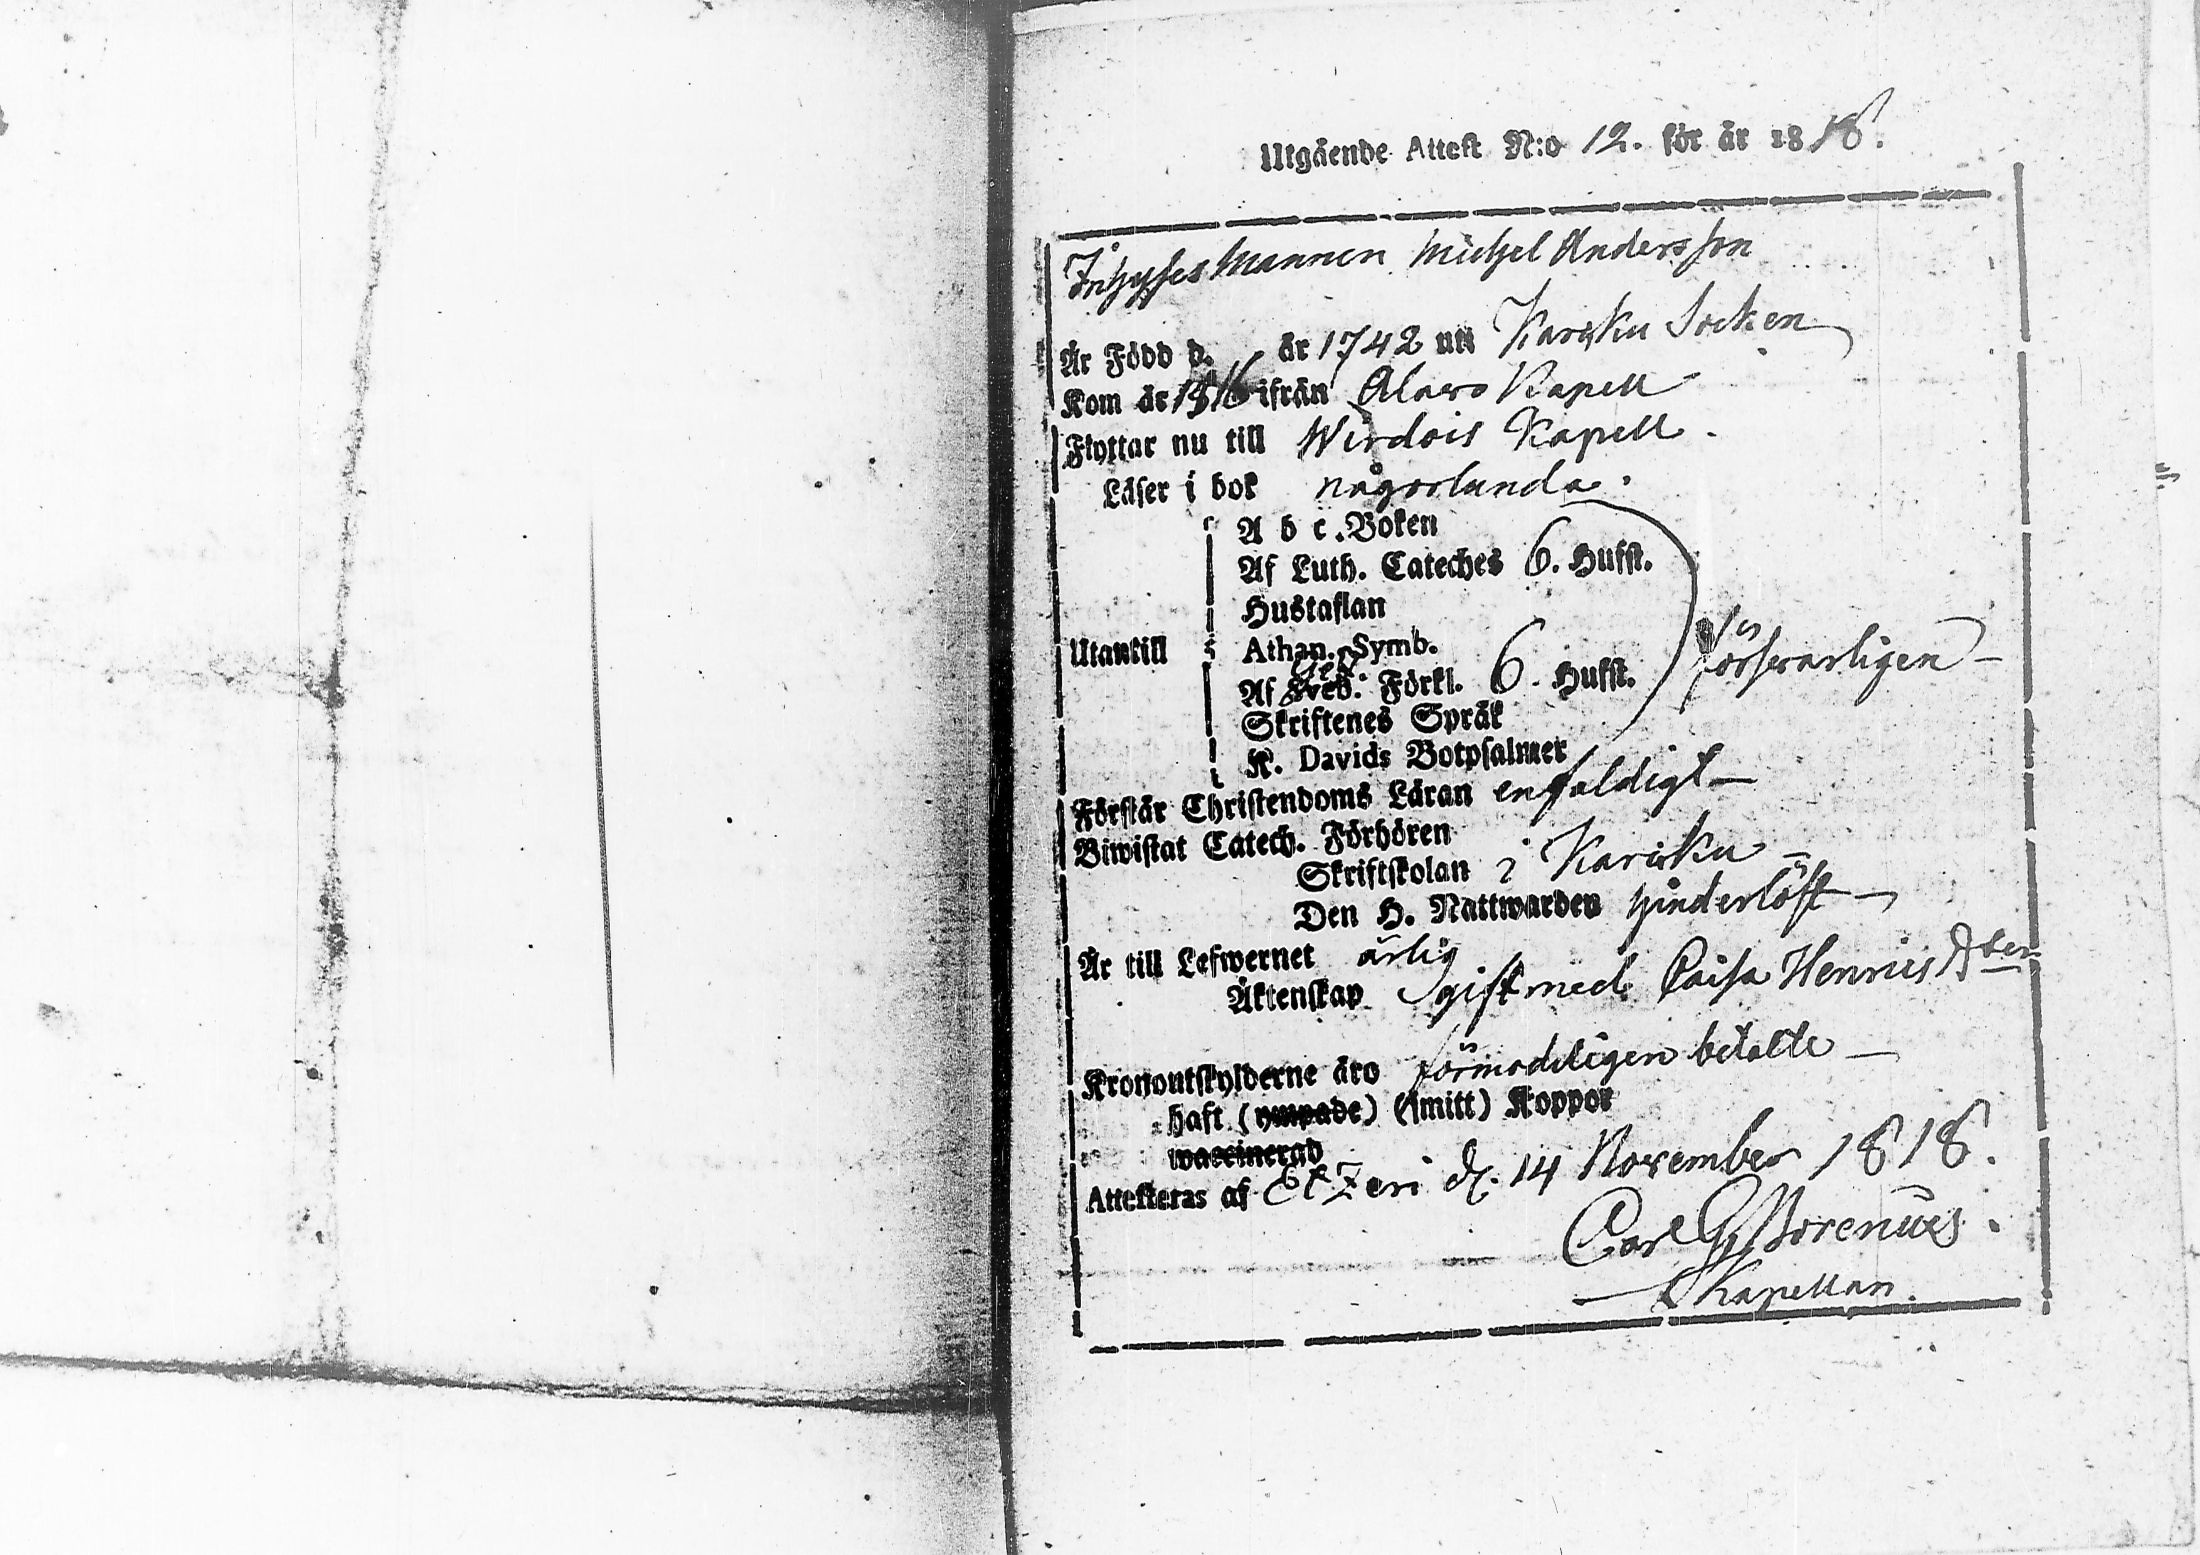 Utgående Attest N:o 12. för år 1818.
Inhyses Mannen Michel Andersson
Är Född d. år 1742 uti Karkku Socken
Kom år 1816 ifrån Alawo Kapell
Flyttar nu till Wirdois Kapell.
Läser i bok någorlunda.
A b c. Boken
Af Luth. Cateches 6. Hufst.
Hustaflan
Utantill Athan. Symb. försvarligen
Af Sveb. Förkl. 6. Hufst.
Skriftenes Språk
K. Davids Botpsalmer
Förstår Christendoms Läran enfaldigt
Biwistat Catech. Förhören
Skriftskolan i Karkku
Den H. Nattwarden hinderlöst
Är till Lefwernet ärlig
Äktenskap gift med Caisa Henrics Dter
Kronoutskylderne äro förmodeligen betalte
haft (ympade) (smitt) Koppor
waccinerad
Attesteras af Etzeri d. 14 November 1818.
Carl G. Borenius.
Kapellan.